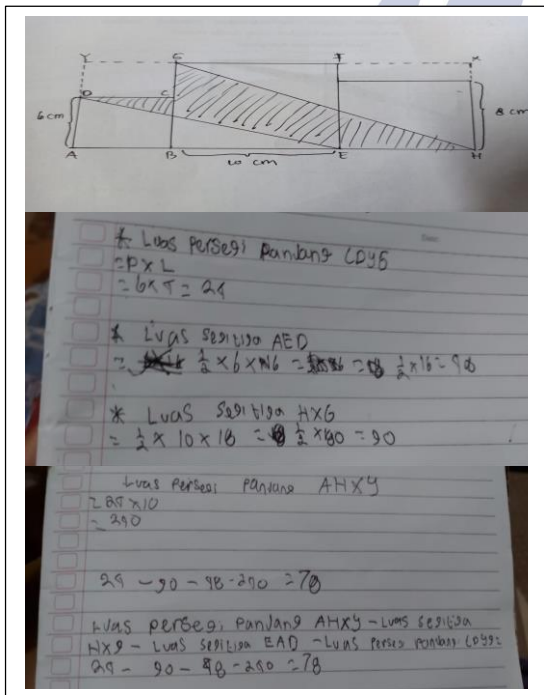 Y G F X
D C
6 cm 8 cm
A B E H
10 cm
* Luas Persegi Panjang CDYG
= P x L
= 6 x 4 = 24
* Luas Segitiga AED
= 1/2 x 6 x 16 = 1/2 x 16 = 48
* Luas Segitiga HXG
= 1/2 x 10 x 18 = 1/2 x 180 = 90
Luas Persegi Panjang AHXY
= 24 x 10
= 240
24 - 90 - 48 - 240 = 78
Luas persegi Panjang AHXY - Luas segitiga
HXG - Luas segitiga EAD - Luas Persegi Panjang CDYG =
24 - 90 - 48 - 240 = 78